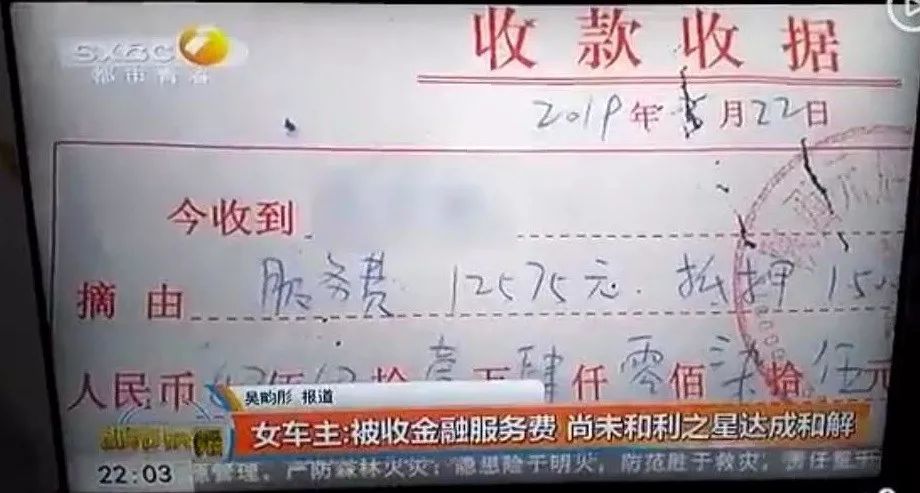 SXBC
都市青春
收款收据
2019年 月22日
今收到
摘由 服务费 12575元. 抵押 150
人民币 拾壹万肆仟零佰柒拾伍元
吴韵彤 报道
女车主:被收金融服务费 尚未和利之星达成和解
22:03 管理，严防森林火灾；隐患险于明火，防范胜于救灾，责任重于